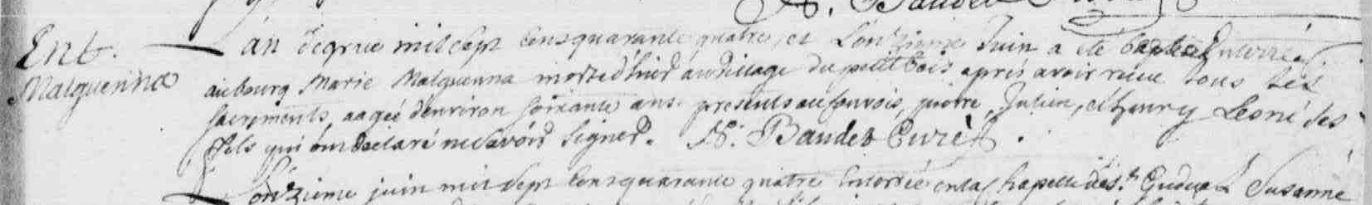 N. Baudet
Ent. L'an de grace mil sept cens quarante quatre, et L'onzieme Juin a eté Enterrée
Malguenna au bourg Marie Malguenna morte d'hier au village du petit bois après avoir recue tous ses
sacrements, aagée d'environ soixante ans. presents au convois, pierre, Julien, et henry Lesné ses
fils qui ont declaré ne savoir signer. N. Baudet Curé
L'onzieme juin mil sept cens quarante quatre Enterrée en la Chapelle de st. Susanne